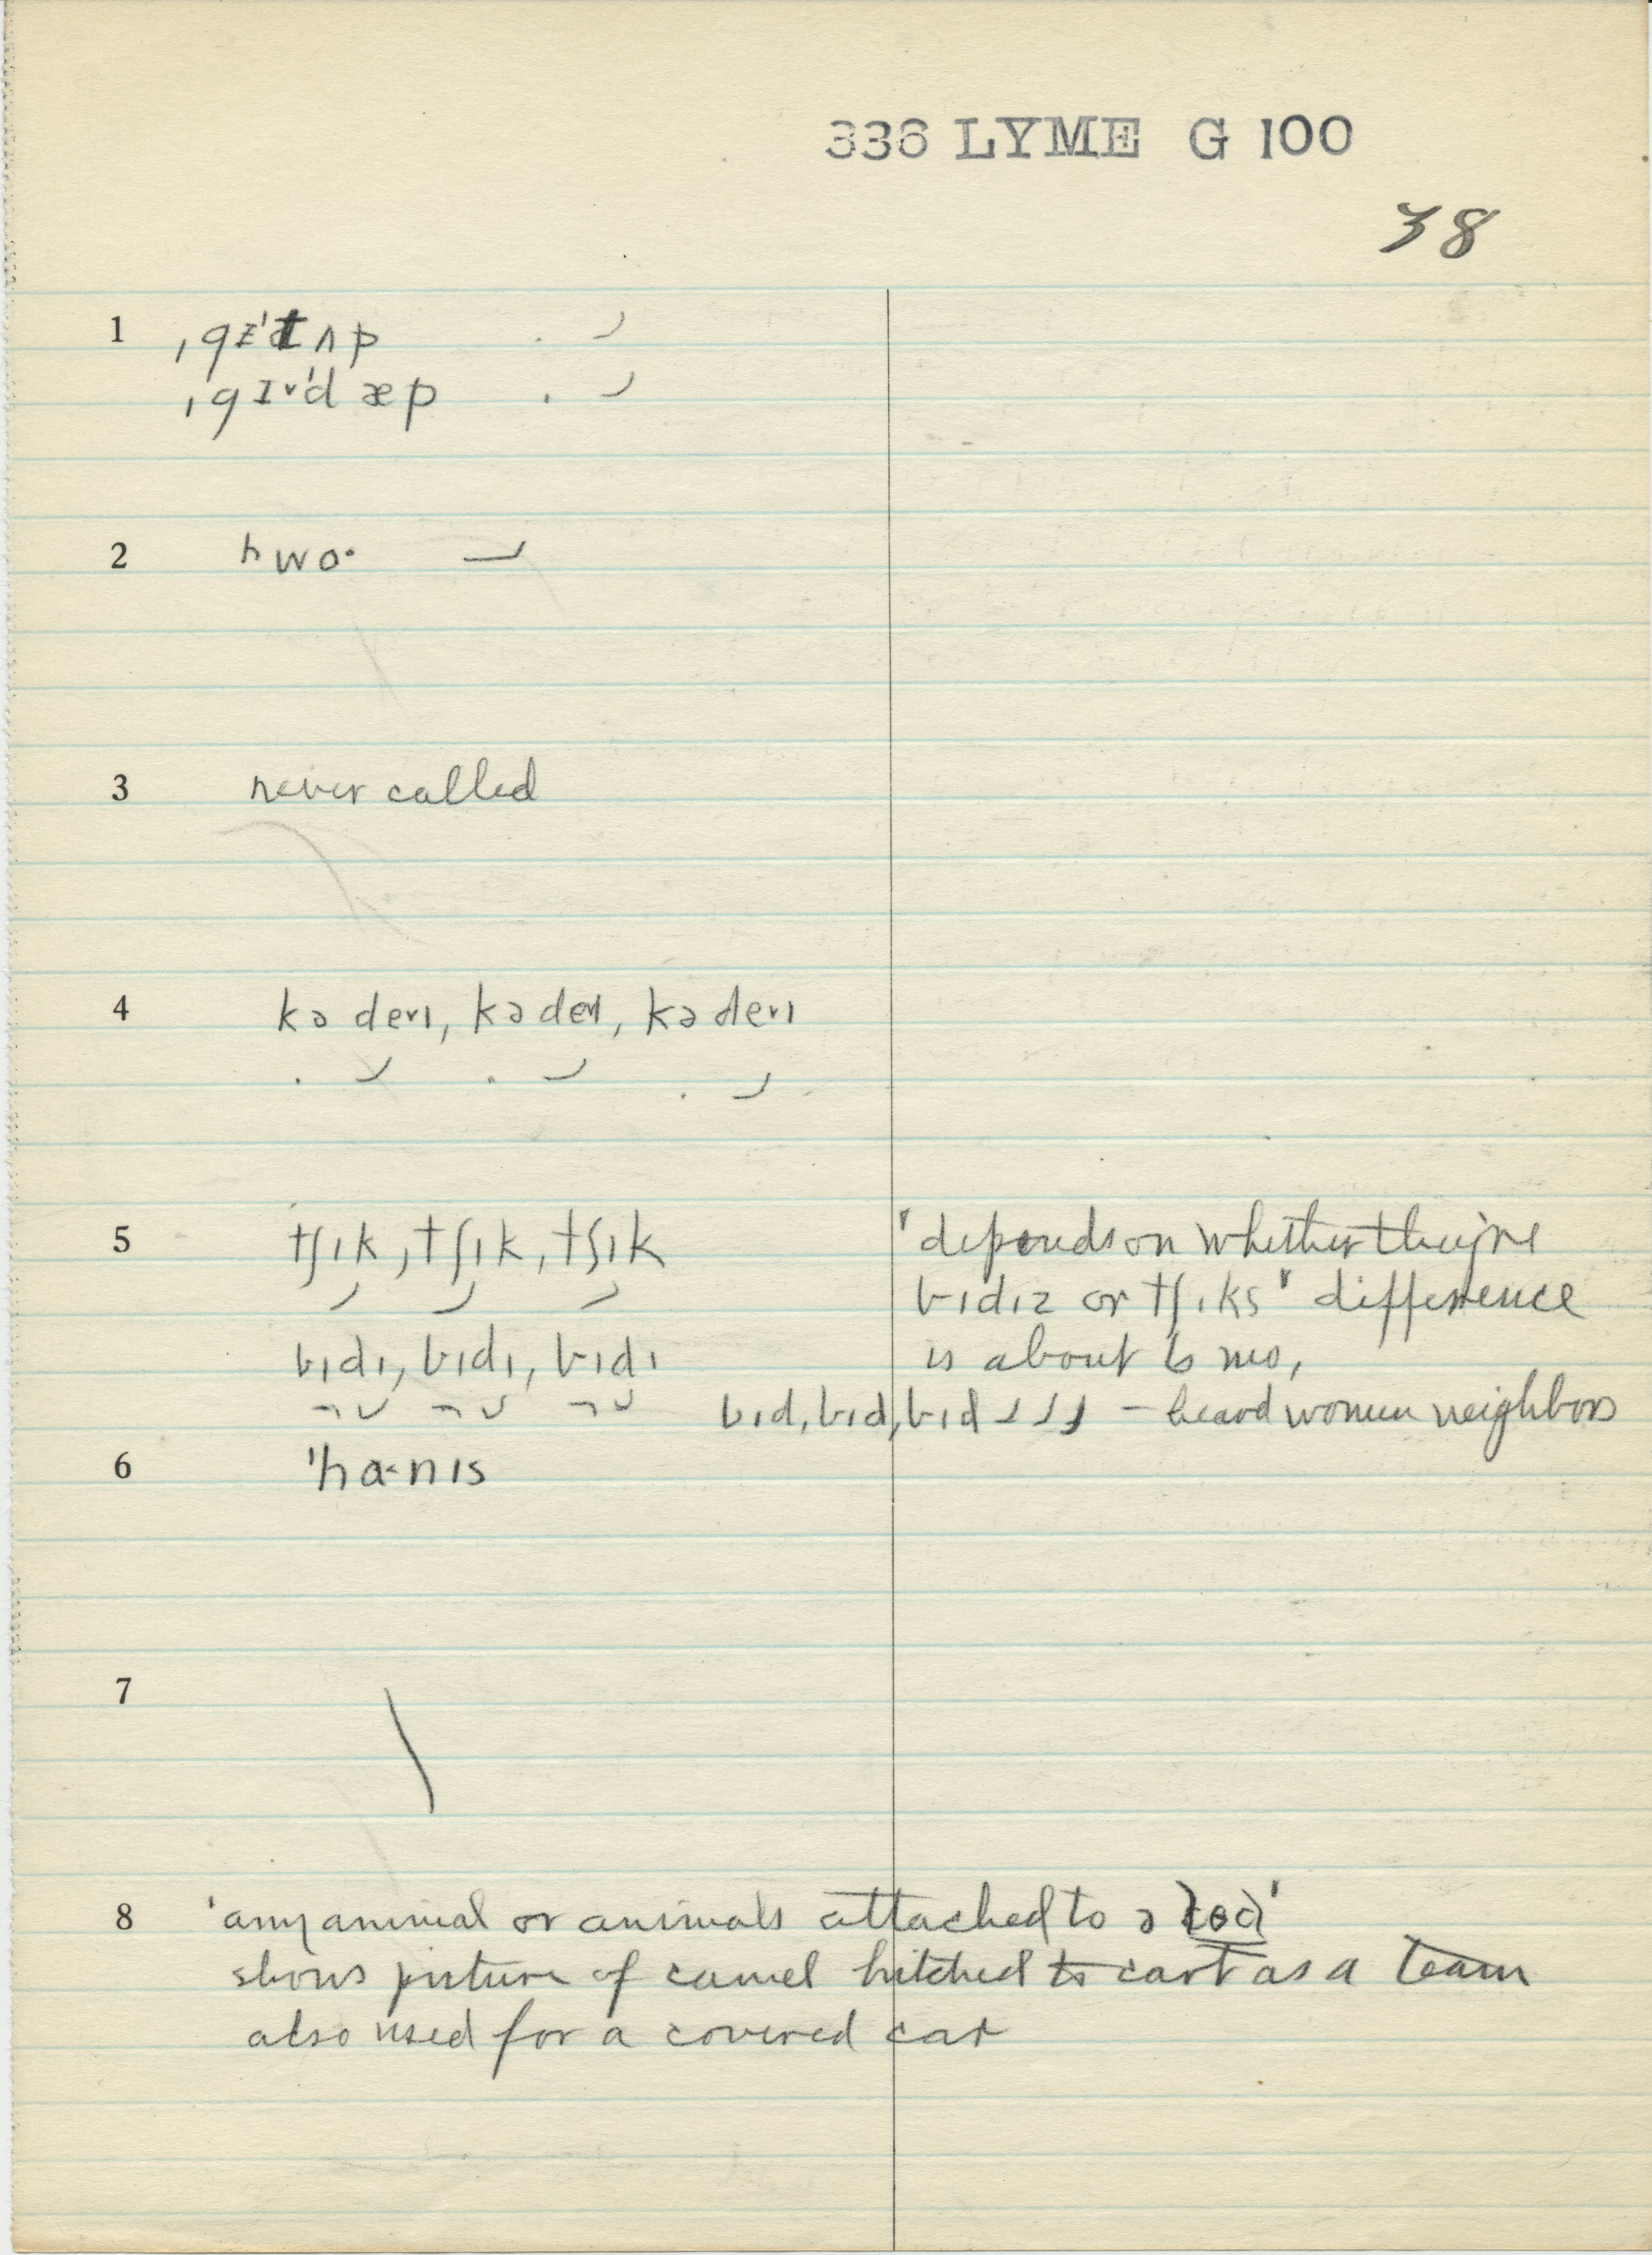 336 LYME G 100
38
1 ˌgɪˈtʌp
ˌgɪ˅ˈdæp
2 hwo·
3 never called
4 kə de˅ɪ, kə deɪ, kə de˅ɪ
5 tʃɪk, tʃɪk, tʃɪk
'depends on whether they're
bɪdɪz or tʃɪks' difference
bɪdɪ, bɪdɪ, bɪdɪ
is about 6 mo,
bɪd, bɪd, bɪd – heard women neighbors
6 ˈha·nɪs
7
8 'any animal or animals attached to ə'
shows picture of camel hitched to cart as a team
also used for a covered cart